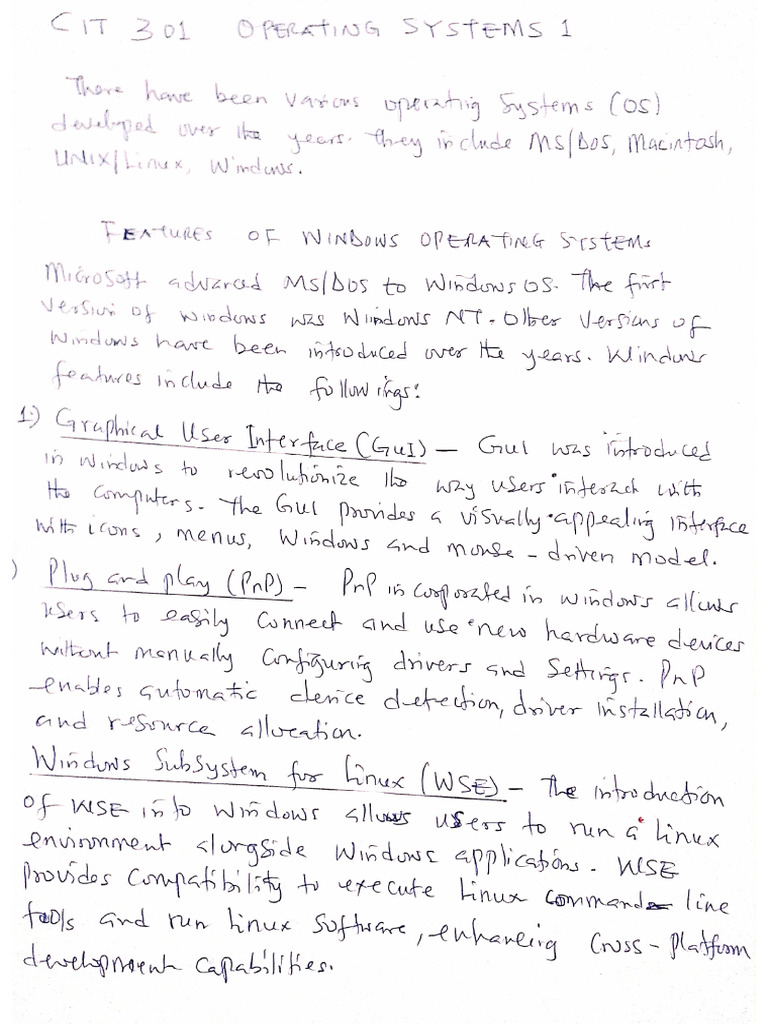 CIT 301 OPERATING SYSTEMS 1
There have been various operating systems (OS)
developed over the years. They include MS/DOS, Macintosh,
UNIX/Linux, Windows.
FEATURES OF WINDOWS OPERATING SYSTEMS
Microsoft advanced MS/DOS to Windows OS. The first
version of windows was Windows NT. Other versions of
Windows have been introduced over the years. Windows
features include the followings:
1.) Graphical User Interface (GUI) — GUI was introduced
in windows to revolutionize the way users interact with
the computers. The GUI provides a visually appealing interface
with icons, menus, windows and mouse-driven model.
) Plug and play (PnP) — PnP incorporated in windows allows
users to easily connect and use new hardware devices
without manually configuring drivers and settings. PnP
enables automatic device detection, driver installation,
and resource allocation.
Windows Subsystem for Linux (WSE) — The introduction
of WSE into windows allows users to run a Linux
environment alongside windows applications. WSE
provides compatibility to execute Linux command-line
tools and run Linux software, enhancing cross-platform
development capabilities.